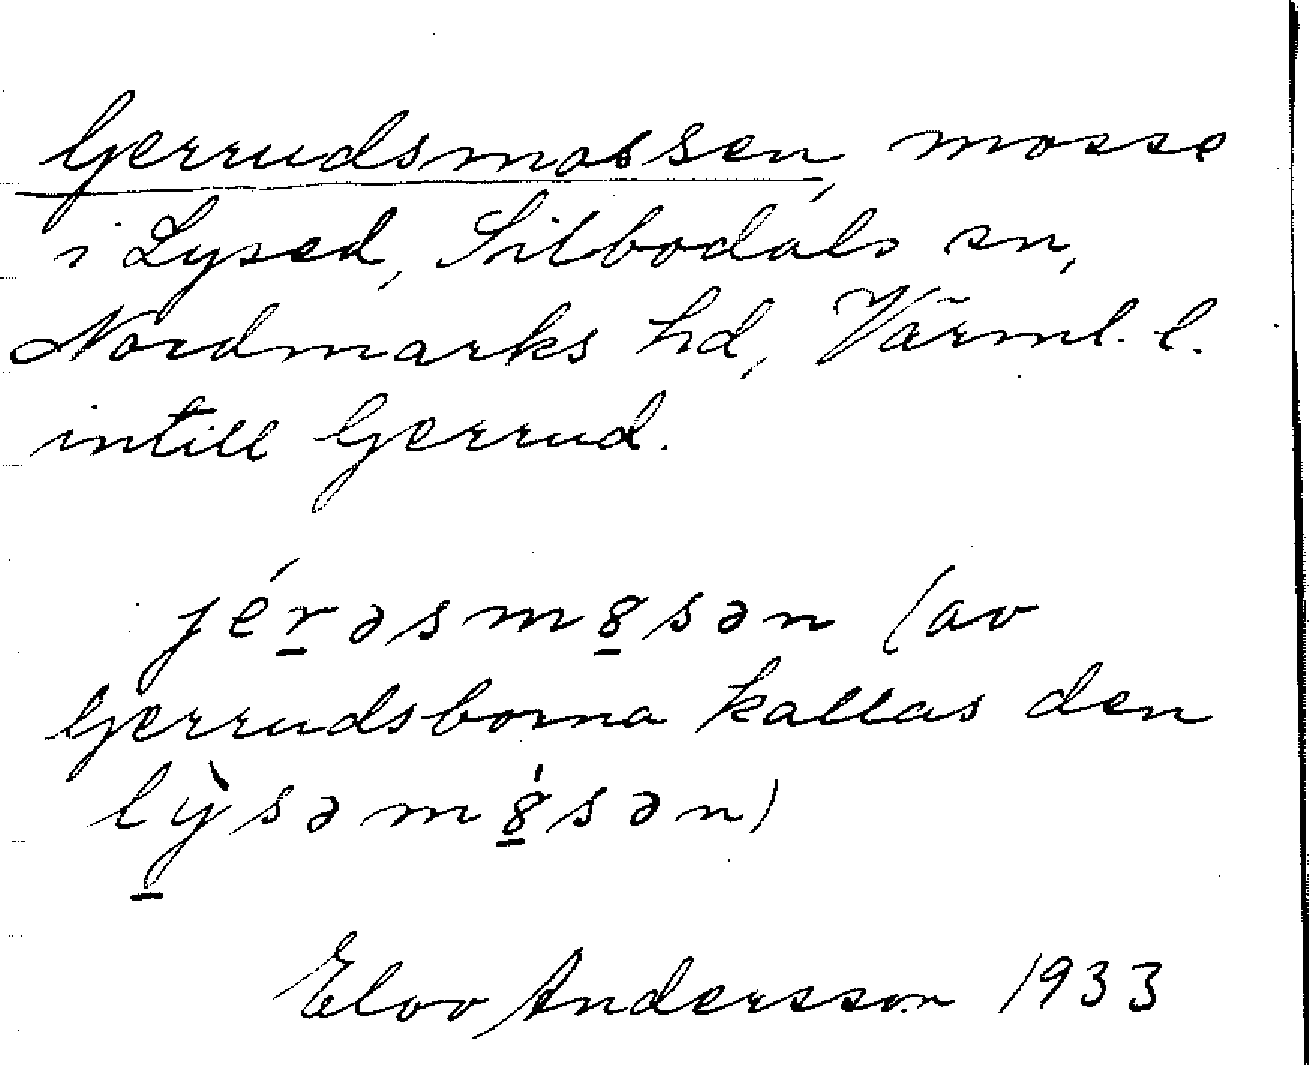 Gerrudsmossen, mosse
i Lysed, Silbodals sn,
Nordmarks hd, Värml. l.
intill Gerrud.
jér̲əsm8̲sən (av
Gerrudsborna kallas den
lỳ̲səm8̲́sən)
Elov Andersson 1933